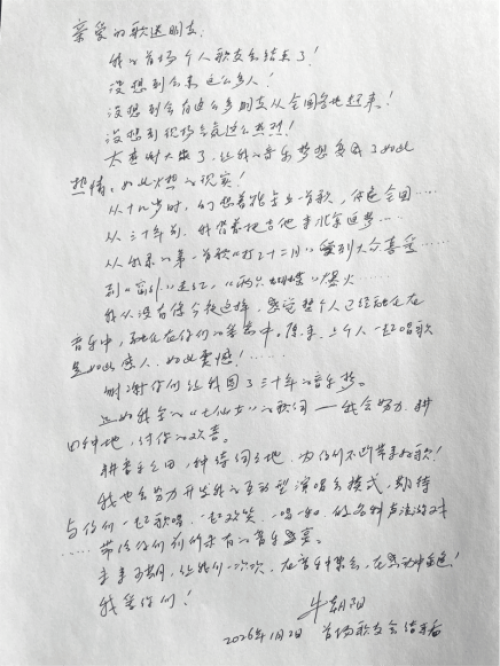 亲爱的歌迷朋友:
我的首场个人歌友会结束了!
没想到会来这么多人!
没想到会有这么多朋友从全国各地赶来!
没想到现场会气这么热烈!
太感谢大家了,让我的音乐梦想变成了如此
热情、如此火热的现实!
从十九岁时,们想着能写一首歌,传遍全国……
从三十年前,我背着把吉他来北京追梦……
从的第一首歌《十二月》受到大众喜爱……
到《窗外》走红,《两只蝴蝶》爆火……
我从没有像今夜这样,感觉整个人已经融化在
音乐中,融化在你们的掌声中。原来,上千人一起唱歌
是如此感人,如此震撼!……
谢谢你们让我圆了三十年的音乐梦。
正如我写的《七仙女》的歌词——我会努力耕
田种地,讨你的欢喜。
耕音乐之田,种诗词之地,为你们不断带来好歌!
我也会努力开发我的互动型演唱会模式,期待
与你们一起歌唱、一起欢笑、一唱一和、的各种声浪
……带给你们前所未有的音乐盛宴。
未来可期,让我们一次次,在音乐中聚会,在感动中!
我爱你们!
牛朝阳
2026年1月2日 首场歌友会结束后